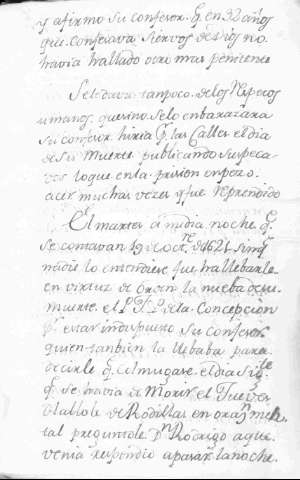 y afirmo su confesor q. en 32 años
que confesava siervos de Dios no
havia hallado otro mas penitente
Se le dava tampoco de los respetos
umanos, que si no se lo enbarazara
su confesor, hiria por las Calles el dia
de su Muerte publicando sus peca
dos lo que en la prision enpezo
acer muchas vezes y fue reprendido
El martes a media noche q.
se contavan 19 de Octre. de 1621 sin q.
nadie lo entendiese fue ha llebarle
en virtud de orden la nueba de su
muerte. el Pe. Fr. de la Concepcion
por estar indispuesto su confesor
quien tanbien la llebaba para
decirle q. el mugare el dia sigte.
q. se havia de Morir el Jueves
hallole de Rodillas en oraon. men
tal preguntole Dn. Rodrigo a que
venia respondio a pasar la noche.